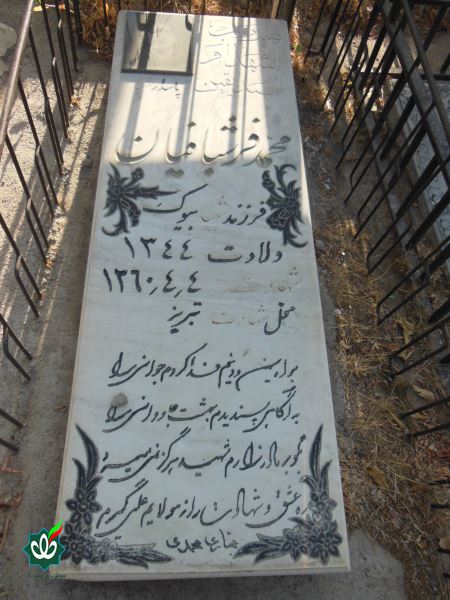 پاسدار
محمد فرشبافیان
فرزند بیوک
ولادت ۱۳۴۴
شهادت ۱۳۶۰٫۴٫۴
محل شهادت تبریز
براه میهن و دینم فدا کردم جوانی را
به آگاهی پسندیدم بهشت جاودانی را
مگو مادر زارم شهید هرگز نمی‌میرد
ره عشق و شهادت را ز مولایم علی گیرم